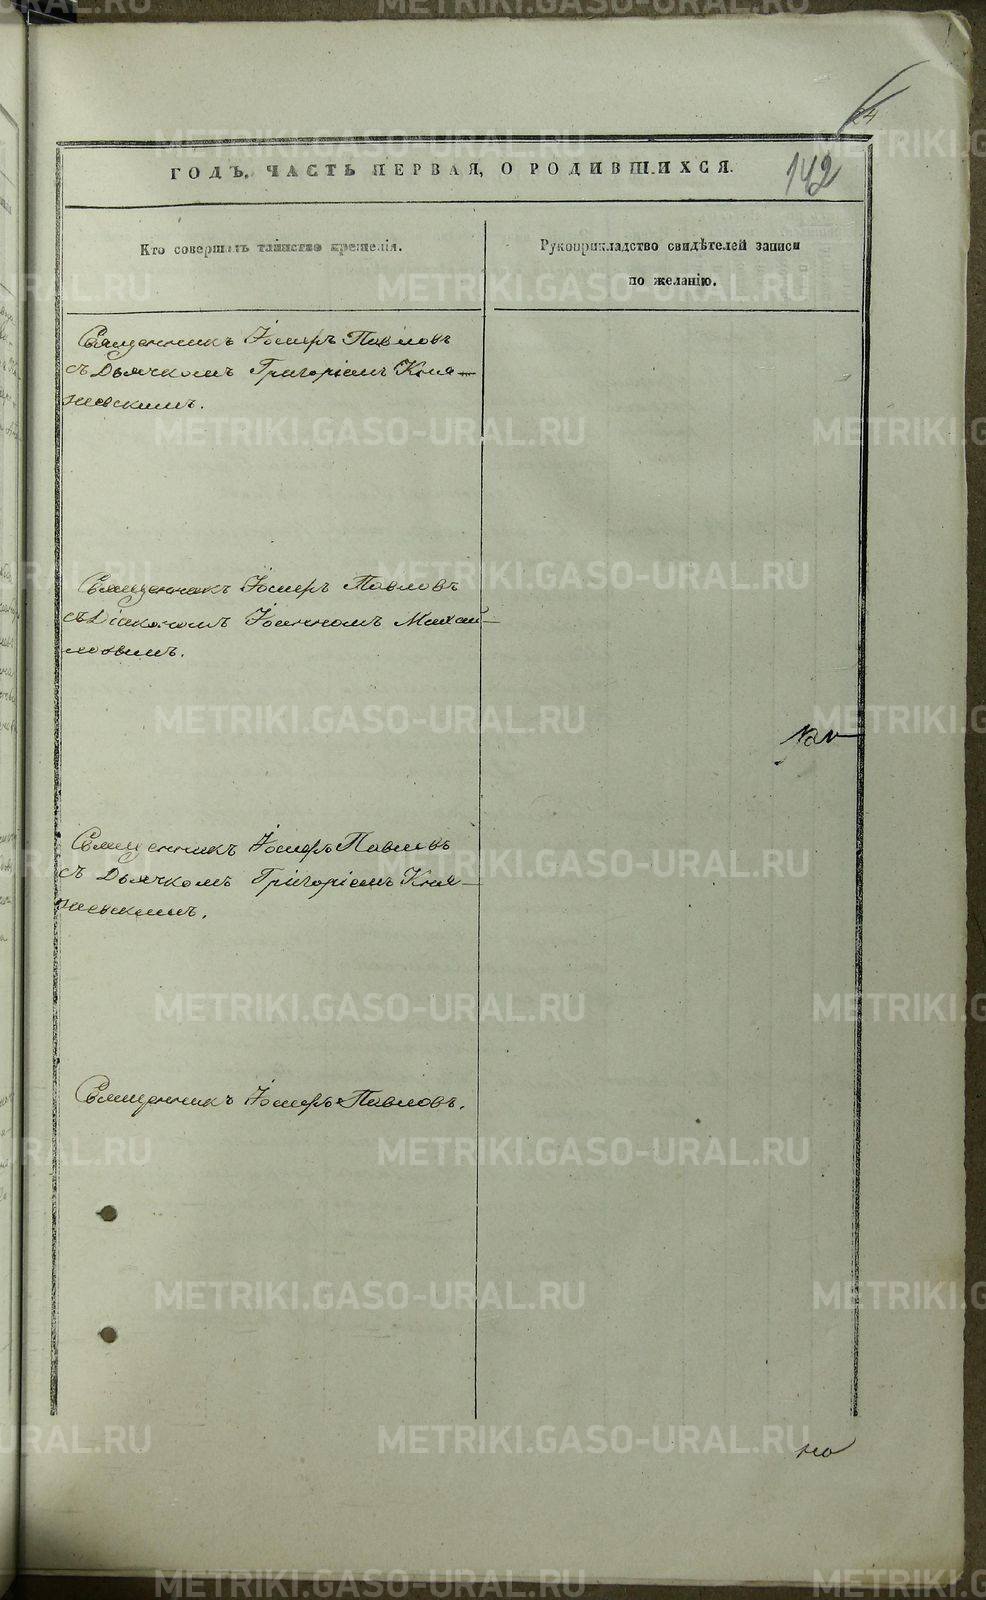 24
142
ГОДЪ. ЧАСТЬ ПЕРВАЯ, О РОДИВШИХСЯ.
Кто совершалъ таинство крещенія.
Рукоприкладство свидѣтелей записи
по желанію.
Священникъ Іосифъ Павловъ
съ Дьячкомъ Григоріемъ Кня-
жевскимъ.
Священникъ Іосифъ Павловъ
съ Діакономъ Іоанномъ Михай-
ловымъ.
Священникъ Іосифъ Павловъ
съ Дьячкомъ Григоріемъ Кня-
жевскимъ.
Священникъ Іосифъ Павловъ.
но
METRIKI.GASO-URAL.RU